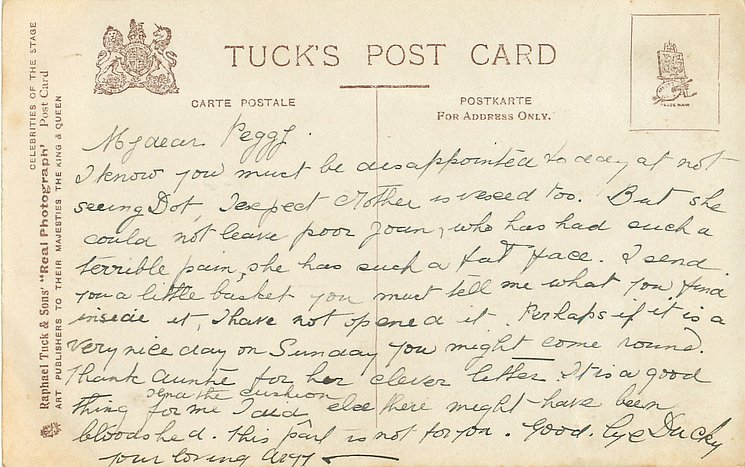 CELEBRITIES OF THE STAGE
Raphael Tuck & Sons' "Real Photograph" Post Card
ART PUBLISHERS TO THEIR MAJESTIES THE KING & QUEEN
TUCK'S POST CARD
CARTE POSTALE
POSTKARTE
FOR ADDRESS ONLY.
TRADE MARK
My dear Peggy.
I know you must be disappointed to day at not
seeing Dot, I expect Mother is vexed too. But she
could not leave poor Joan, who has had such a
terrible pain, she has such a fat face. I send
you a little basket you must tell me what you find
inside it, I have not opened it. Perhaps if it is a
very nice day on Sunday you might come round.
Thank Auntie for her clever letter. It is a good
thing for me I did else there might have been
the cushion
bloodshed. This part is not for you. Good-bye Ducky
your loving